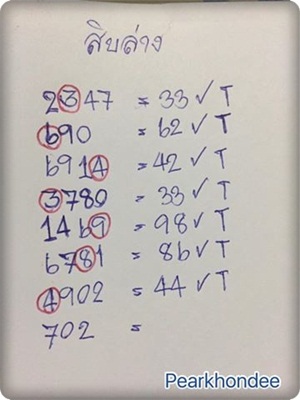 สิบล่าง
2347 = 33 ✓ T
690 = 62 ✓ T
6914 = 42 ✓ T
3780 = 33 ✓ T
1469 = 98 ✓ T
6781 = 86 ✓ T
4902 = 44 ✓ T
702 =
Pearkhondee